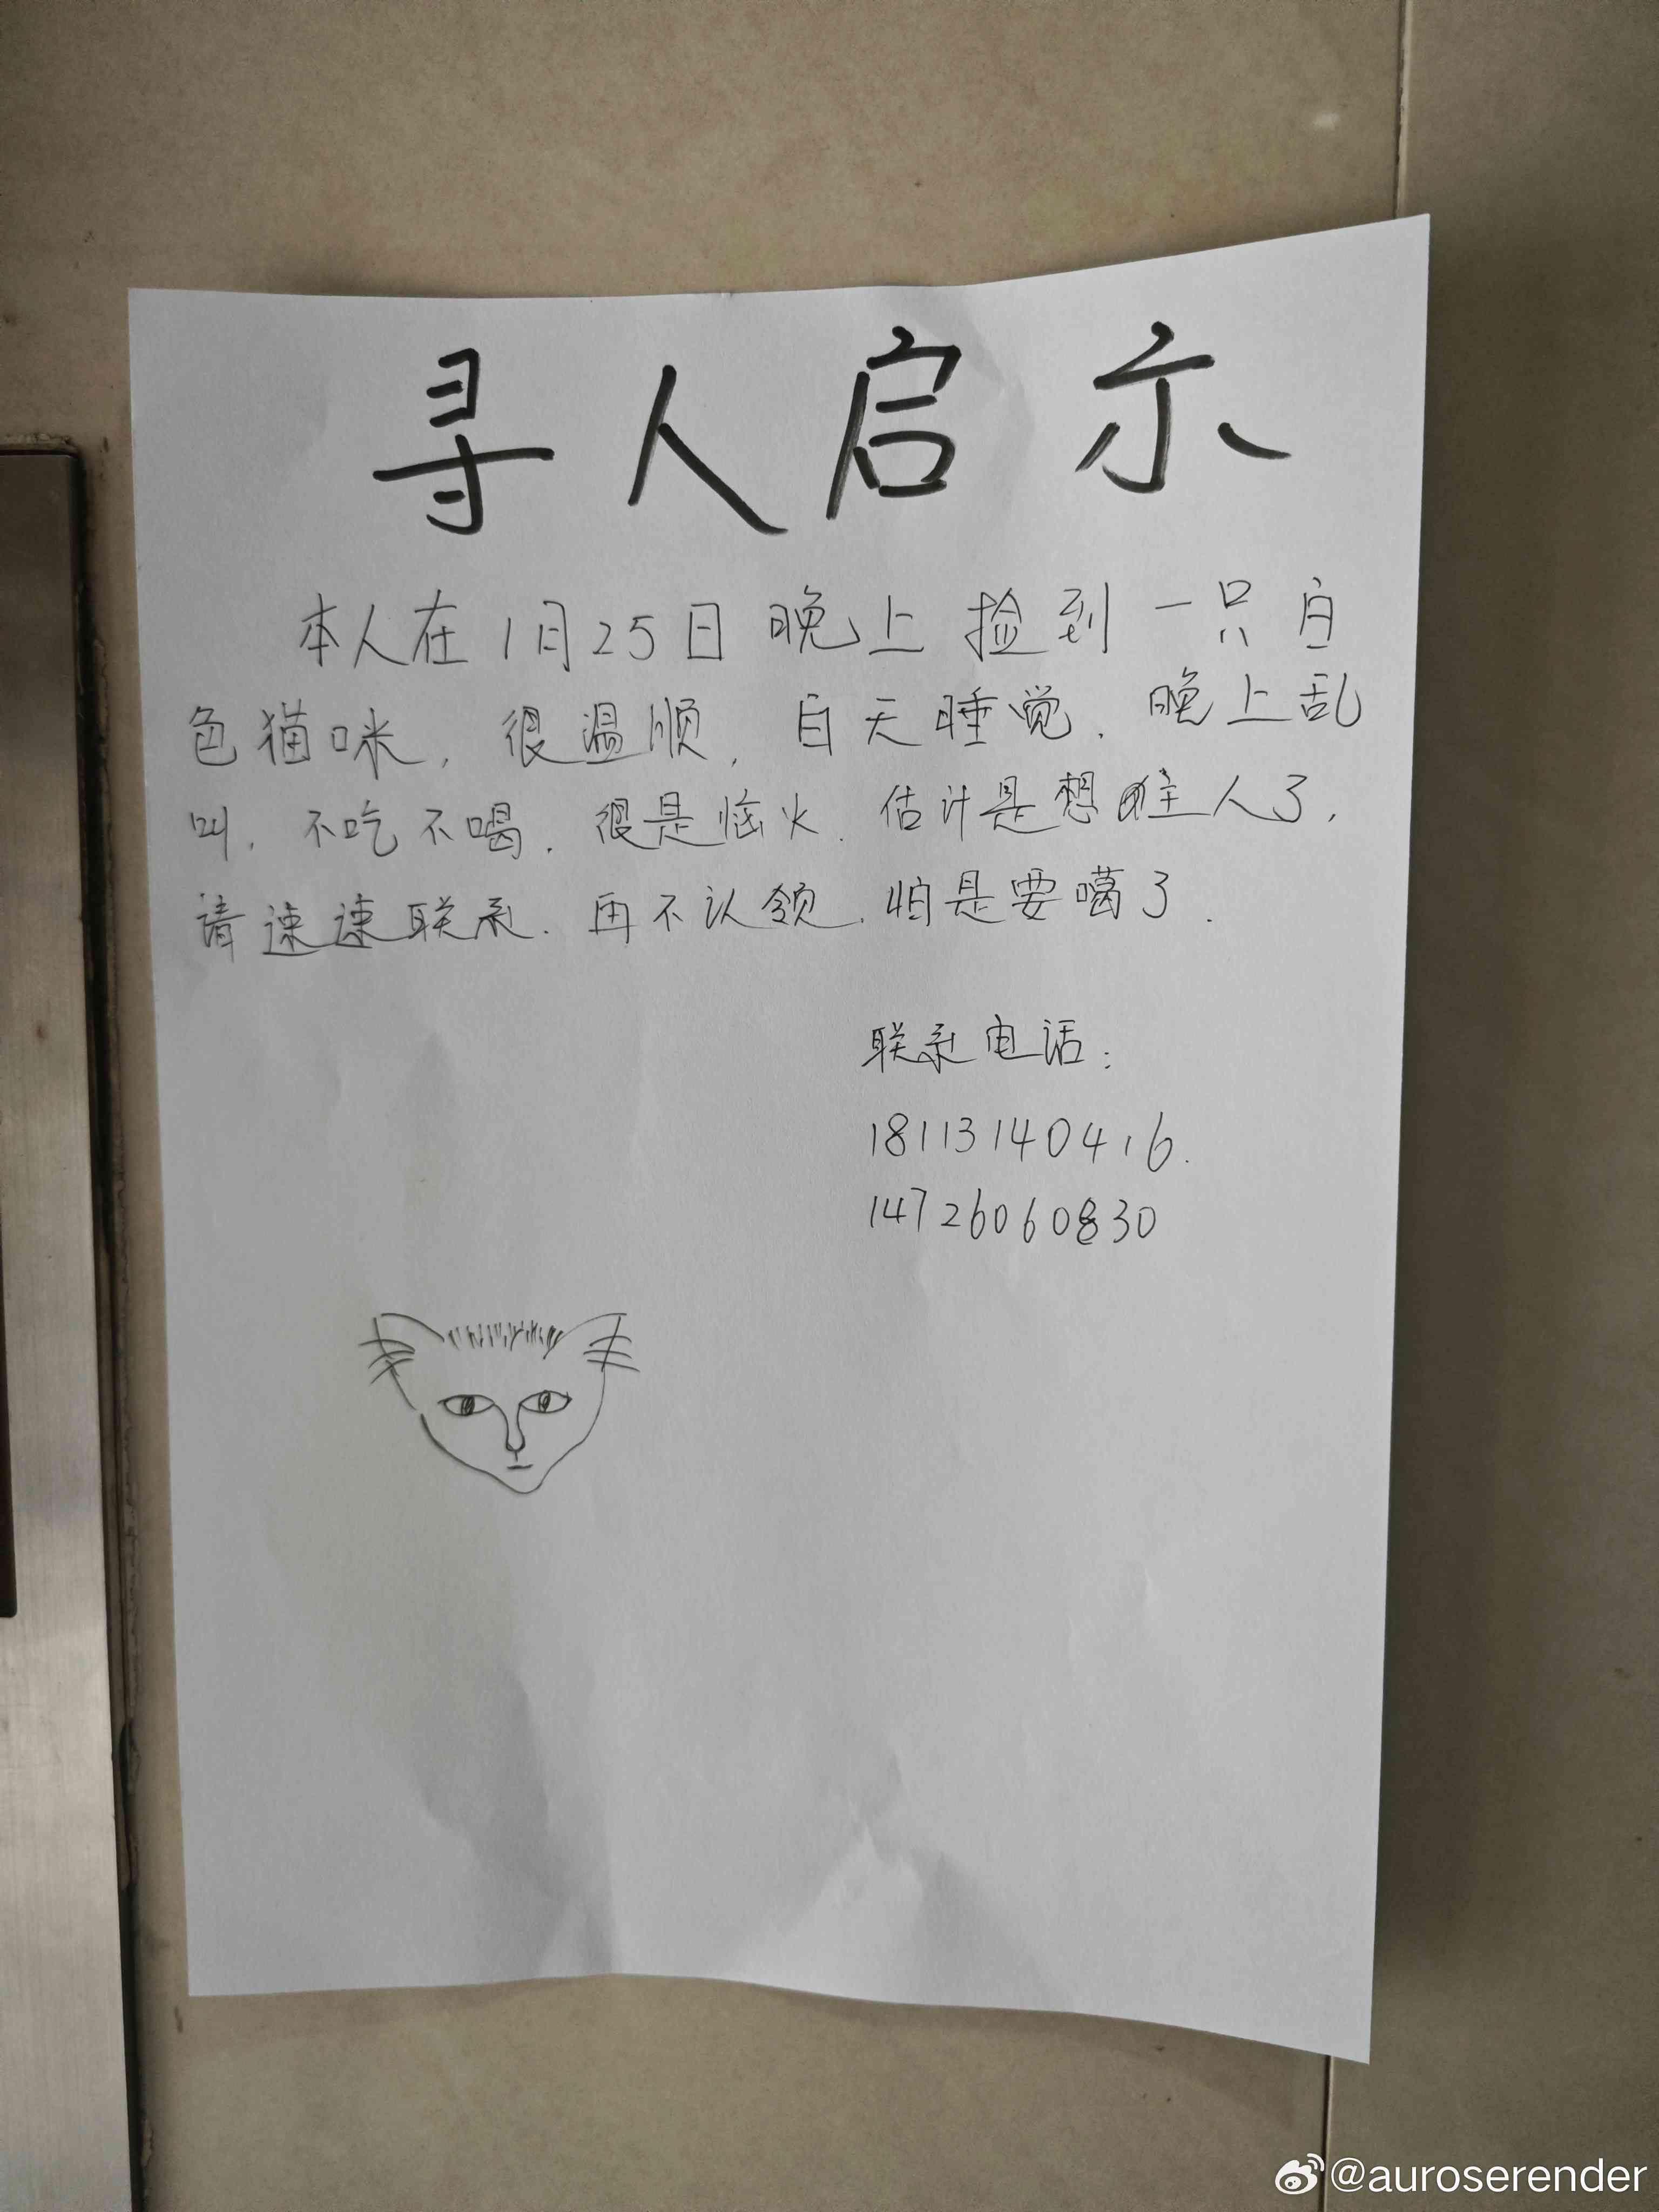 寻人启示
本人在1月25日晚上捡到一只白
色猫咪，很温顺，白天睡觉，晚上乱
叫，不吃不喝，很是恼火，估计是想主人了，
请速速联系，再不认领，怕是要噶了．
联系电话：
18113140416．
14726060830
@auroserender